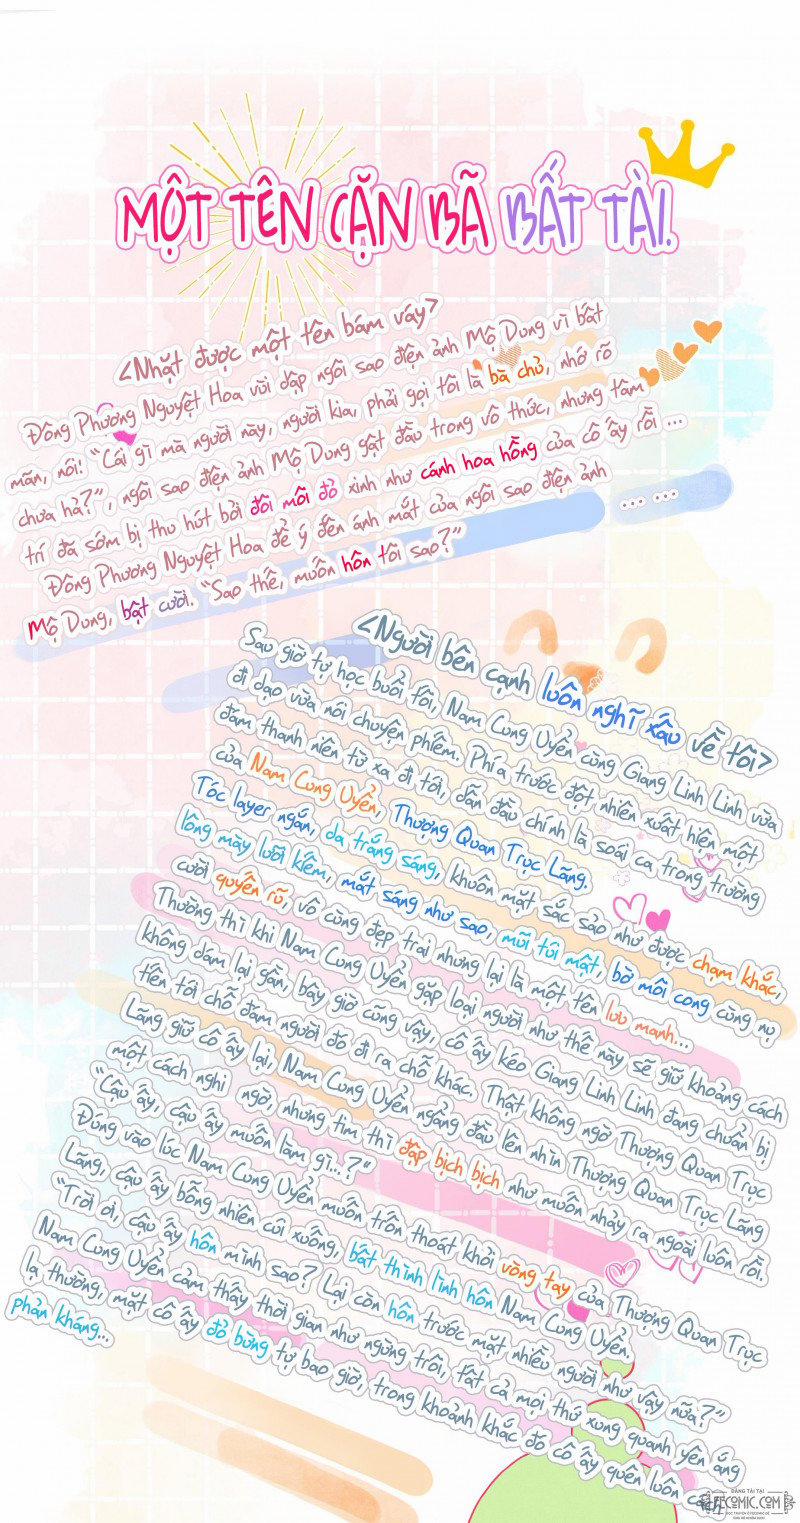 MỘT TÊN CẶN BÃ BẤT TÀI.
<Nhặt được một tên bám váy>
Đông Phương Nguyệt Hoa vùi dập ngôi sao điện ảnh Mộ Dung vì bất
mãn, nói: "Cái gì mà người này, người kia, phải gọi tôi là bà chủ, nhớ rõ
chưa hả?", ngôi sao điện ảnh Mộ Dung gật đầu trong vô thức, nhưng tâm
trí đã sớm bị thu hút bởi đôi môi đỏ xinh như cánh hoa hồng của cô ấy rồi ...
Đông Phương Nguyệt Hoa để ý đến ánh mắt của ngôi sao điện ảnh ... ...
Mộ Dung, bật cười. "Sao thế, muốn hôn tôi sao?"
<Người bên cạnh luôn nghĩ xấu về tôi>
Sau giờ tự học buổi tối, Nam Cung Uyển cùng Giang Linh Linh vừa
đi dạo vừa nói chuyện phiếm. Phía trước đột nhiên xuất hiện một
đám thanh niên từ xa đi tới, dẫn đầu chính là soái ca trong trường
của Nam Cung Uyển, Thượng Quan Trục Lãng.
Tóc layer ngắn, da trắng sáng, khuôn mặt sắc sảo như được chạm khắc,
lông mày lưỡi kiếm, mắt sáng như sao, mũi túi mật, bờ môi cong cùng nụ
cười quyến rũ, vô cùng đẹp trai nhưng lại là một tên lưu manh...
Thường thì khi Nam Cung Uyển gặp loại người như thế này sẽ giữ khoảng cách
không dám lại gần, bây giờ cũng vậy, cô ấy kéo Giang Linh Linh đang chuẩn bị
tiến tới chỗ đám người đó đi ra chỗ khác. Thật không ngờ Thượng Quan Trục
Lãng giữ cô ấy lại, Nam Cung Uyển ngẩng đầu lên nhìn Thượng Quan Trục Lãng
một cách nghi ngờ, nhưng tim thì đập bịch bịch như muốn nhảy ra ngoài luôn rồi.
"Cậu ấy, cậu ấy muốn làm gì...?"
Đúng vào lúc Nam Cung Uyển muốn trốn thoát khỏi vòng tay của Thượng Quan Trục
Lãng, cậu ấy bỗng nhiên cúi xuống, bất thình lình hôn Nam Cung Uyển.
"Trời ơi, cậu ấy hôn mình sao? Lại còn hôn trước mặt nhiều người như vậy nữa?"
Nam Cung Uyển cảm thấy thời gian như ngừng trôi, tất cả mọi thứ xung quanh yên ắng
lạ thường, mặt cô ấy đỏ bừng tự bao giờ, trong khoảnh khắc đó cô ấy quên luôn cách
phản kháng...
ĐĂNG TẢI TẠI
FECOMIC.COM